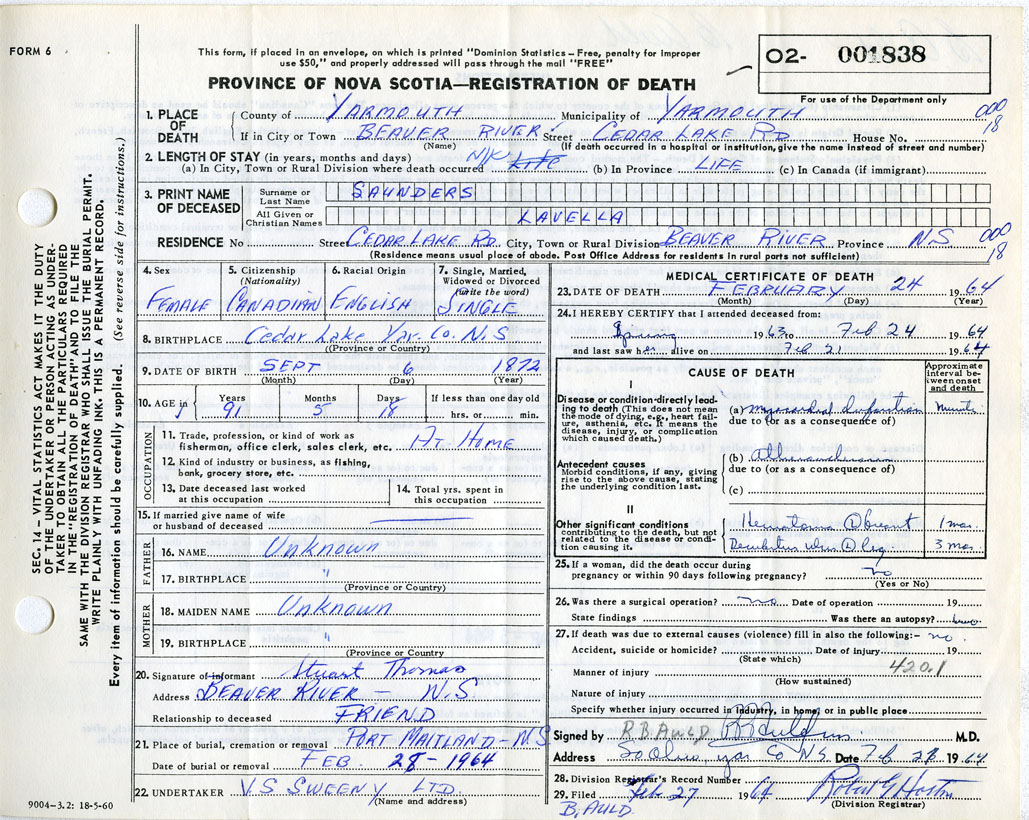 FORM 6
This form, if placed in an envelope, on which is printed "Dominion Statistics – Free, penalty for improper
use $50," and properly addressed will pass through the mail "FREE"
PROVINCE OF NOVA SCOTIA—REGISTRATION OF DEATH
O2- 001838
For use of the Department only
1. PLACE OF DEATH County of YARMOUTH Municipality of YARMOUTH 000
If in City or Town BEAVER RIVER Street CEDAR LAKE RD House No. 18
(Name) (If death occurred in a hospital or institution, give the name instead of street and number)
2. LENGTH OF STAY (in years, months and days)
(a) In City, Town or Rural Division where death occurred N/K Life (b) In Province LIFE (c) In Canada (if immigrant)
3. PRINT NAME OF DECEASED
Surname or Last Name SAUNDERS
All Given or Christian Names LAVELLA
RESIDENCE No Street CEDAR LAKE RD. City, Town or Rural Division BEAVER RIVER Province N.S 000 18
(Residence means usual place of abode. Post Office Address for residents in rural parts not sufficient)
4. Sex FEMALE
5. Citizenship (Nationality) CANADIAN
6. Racial Origin ENGLISH
7. Single, Married, Widowed or Divorced (write the word) SINGLE
8. BIRTHPLACE Cedar Lake Yar. Co. N.S
(Province or Country)
9. DATE OF BIRTH SEPT 6 1872
(Month) (Day) (Year)
10. AGE in Years 91 Months 5 Days 18 If less than one day old hrs. or min.
OCCUPATION
11. Trade, profession, or kind of work as fisherman, office clerk, sales clerk, etc. AT HOME
12. Kind of industry or business, as fishing, bank, grocery store, etc.
13. Date deceased last worked at this occupation
14. Total yrs. spent in this occupation
15. If married give name of wife or husband of deceased
FATHER
16. NAME Unknown
17. BIRTHPLACE "
(Province or Country)
MOTHER
18. MAIDEN NAME Unknown
19. BIRTHPLACE "
(Province or Country)
20. Signature of informant Stuart Thomas
Address BEAVER RIVER – N.S
Relationship to deceased FRIEND
21. Place of burial, cremation or removal PORT MAITLAND – N.S
Date of burial or removal FEB. 28 – 1964
22. UNDERTAKER V.S SWEENY LTD.
(Name and address)
9004–3.2: 18-5-60
MEDICAL CERTIFICATE OF DEATH
23. DATE OF DEATH FEBRUARY 24 1964
(Month) (Day) (Year)
24. I HEREBY CERTIFY that I attended deceased from:
Spring 1963 to Feb 24 1964
and last saw her alive on Feb 21 1964
CAUSE OF DEATH
Approximate interval between onset and death
I
Disease or condition directly leading to death (This does not mean the mode of dying, e.g., heart failure, asthenia, etc. It means the disease, injury, or complication which caused death.)
(a) Myocardial Infarction Minute
due to (or as a consequence of)
Antecedent causes
Morbid conditions, if any, giving rise to the above cause, stating the underlying condition last.
(b)
due to (or as a consequence of)
(c)
II
Other significant conditions contributing to the death, but not related to the disease or condition causing it.
Hematoma breast 1 mo.
Decubitus ulcer leg 3 mos
25. If a woman, did the death occur during pregnancy or within 90 days following pregnancy? no
(Yes or No)
26. Was there a surgical operation? no Date of operation 19
State findings Was there an autopsy? no
27. If death was due to external causes (violence) fill in also the following:- no.
Accident, suicide or homicide? Date of injury 19
(State which)
Manner of injury 420.1
(How sustained)
Nature of injury
Specify whether injury occurred in industry, in home, or in public place
Signed by R.B. AULD M.D.
Address Yar Co N.S. Date Feb 28 1964
28. Division Registrar's Record Number
29. Filed Feb 27 1964
(Division Registrar)
B. AULD
SEC. 14 – VITAL STATISTICS ACT MAKES IT THE DUTY
OF THE UNDERTAKER OR PERSON ACTING AS UNDER-
TAKER TO OBTAIN ALL THE PARTICULARS REQUIRED
IN THE "REGISTRATION OF DEATH" AND TO FILE THE
SAME WITH THE DIVISION REGISTRAR WHO SHALL ISSUE THE BURIAL PERMIT.
WRITE PLAINLY WITH UNFADING INK. THIS IS A PERMANENT RECORD.
Every item of information should be carefully supplied. (See reverse side for instructions.)